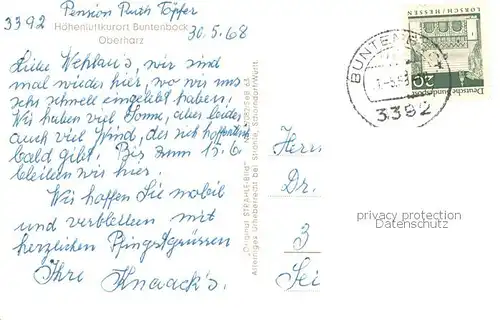 Pension Ruth Töpfer
3392
Höhenluftkurort Buntenbock
Oberharz
30.5.68
Liebe Wehlau's, wir sind
mal wieder hier, wo wir uns
sehr schnell eingelebt haben.
Wir haben viel Sonne, aber leider
auch viel Wind, der sich hoffentlich
bald gibt. Bis zum 15.6.
bleiben wir hier.
Wir hoffen Sie mobil
und verbleiben mit
herzlichen Pfingstgrüssen
Ihre Knaack's.
"Original STRÄHLE-Bild"
Alleiniges Urheberrecht bei Strähle, Schorndorf/Württ.
LORSCH/HESSEN
Deutsche Bundespost
20
BUNTENBOCK
3392
Herrn
Dr.
3
privacy protection
Datenschutz